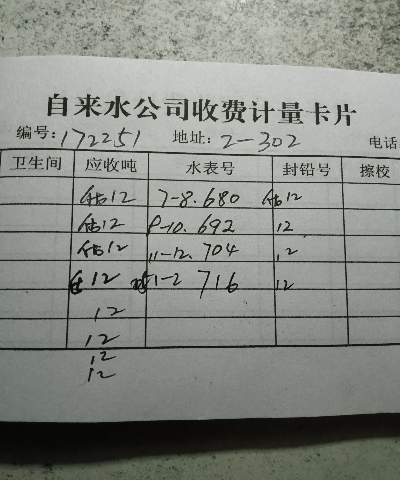 自来水公司收费计量卡片
编号: 172251 地址: 2-302 电话:
卫生间 应收吨 水表号 封铅号 擦校
估12 7-8. 680 估12
估12 9-10. 692 12
估12 11-12. 704 12
12 1-2 716 12
12
12
12
12